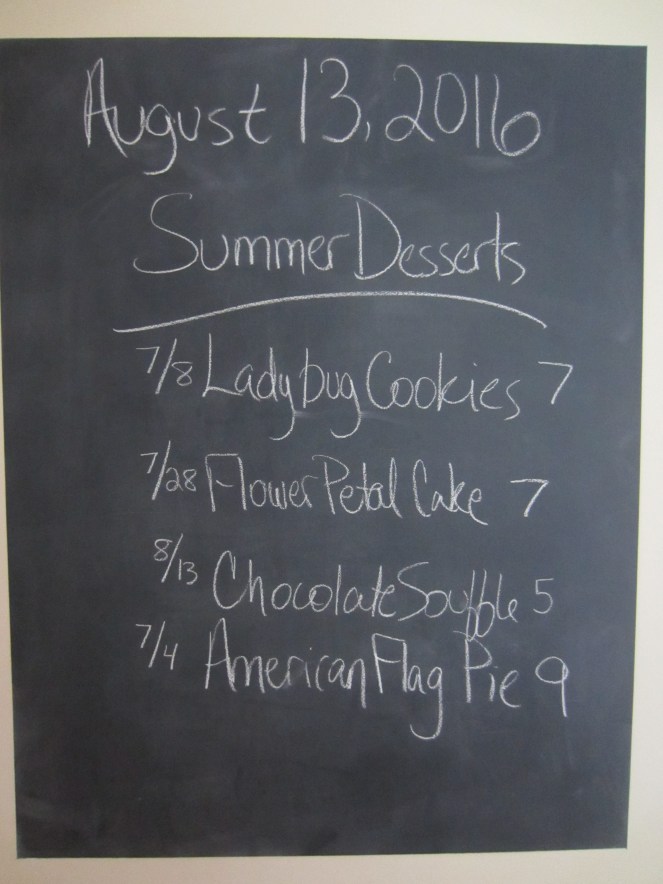 August 13, 2016
Summer Desserts
7/8 Ladybug Cookies 7
7/28 Flower Petal Cake 7
8/13 Chocolate Souffle 5
7/4 American Flag Pie 9